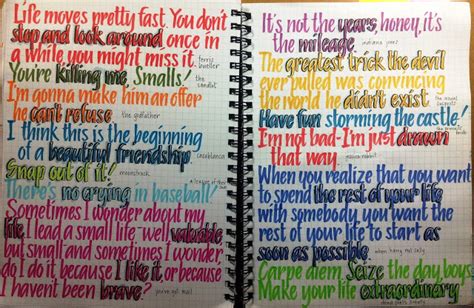 Life moves pretty fast. You don't
stop and look around once in
a while you might miss it.
ferris
bueller
You're killing me, Smalls!
the
sandlot
I'm gonna make him an offer
he can't refuse
the godfather
I think this is the beginning
of a beautiful friendship
casablanca
Snap out of it!
moonstruck
There's no crying in baseball!
a league of their
Sometimes I wonder about my
life. I lead a small life-well, valuable,
but small and sometimes I wonder,
do I do it because I like it, or because
I haven't been brave?
you've got mail
It's not the years, honey, it's
the mileage.
indiana jones
The greatest trick the devil
ever pulled was convincing
the world he didn't exist.
the usual
suspects
Have fun storming the castle!
the princess
bride
I'm not bad-I'm just drawn
that way.
When you realize that you want
to spend the rest of your life
with somebody you want the
rest of your life to start as
soon as possible.
when harry met sally
Carpe diem. Seize the day, boys.
Make your life extraordinary
dead poets society